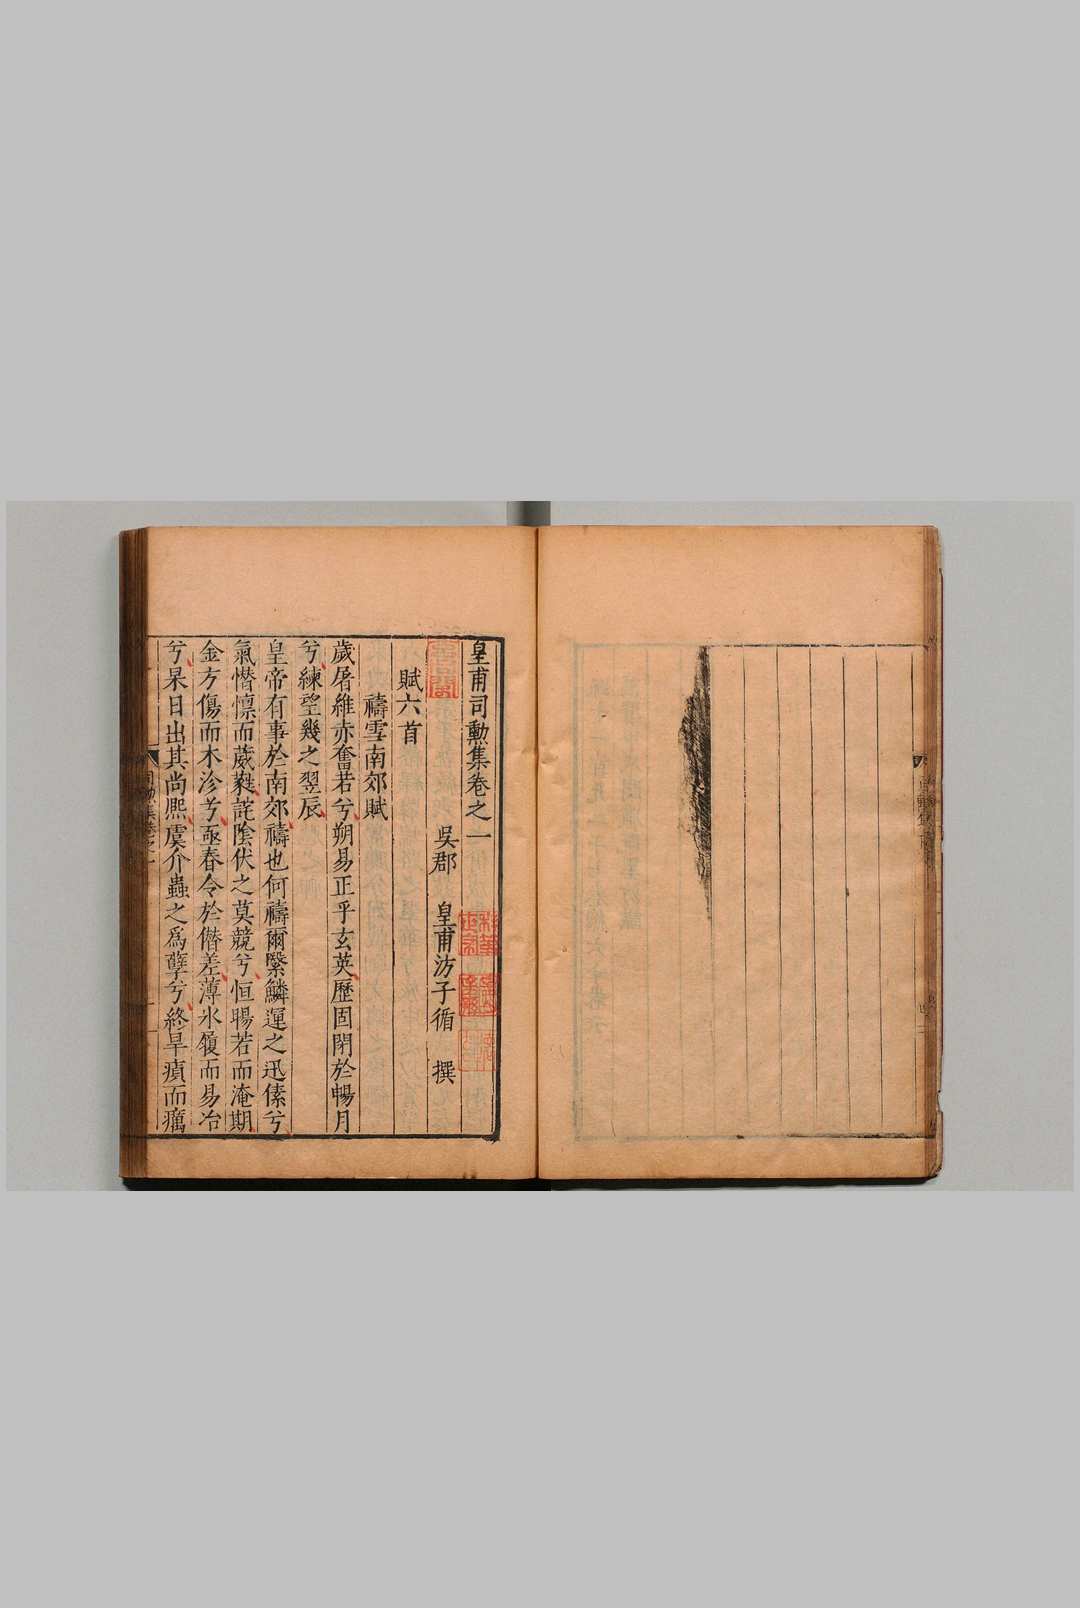 皇甫司勳集卷之一
吳郡 皇甫汸子循 撰
賦六首
禱雪南郊賦
歲屠維赤奮若兮朔易正乎玄英歷固閉於暢月
兮練望幾之翌辰
皇帝有事於南郊禱也何禱爾繄鱗運之迅傃兮
氣憯懍而葳蕤詫陰伏之莫競兮恒暘若而淹期
金方傷而木沴兮亟春令於僭差薄氷履而易冶
兮杲日出其尚熈虞介蟲之為孽兮終旱瘨而癘